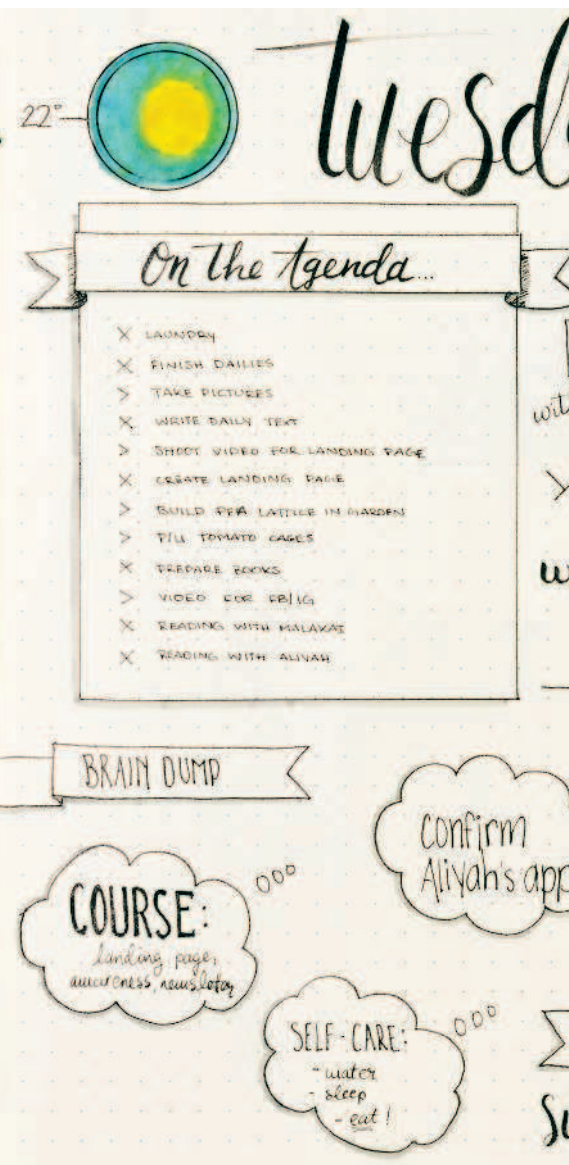 22°
Tuesd
On the Agenda...
X LAUNDRY
X FINISH DAILIES
> TAKE PICTURES
X WRITE DAILY TEXT
> SHOOT VIDEO FOR LANDING PAGE
X CREATE LANDING PAGE
> BUILD PEA LATTICE IN GARDEN
> P/U TOMATO CAGES
X PREPARE BOOKS
> VIDEO FOR FB/IG
X READING WITH MALAKAI
X READING WITH ALIYAH
wit
w
BRAIN DUMP
confirm
Aliyah's app
COURSE:
landing page,
awareness, newsletter
SELF-CARE:
- water
- sleep
- eat!
Su